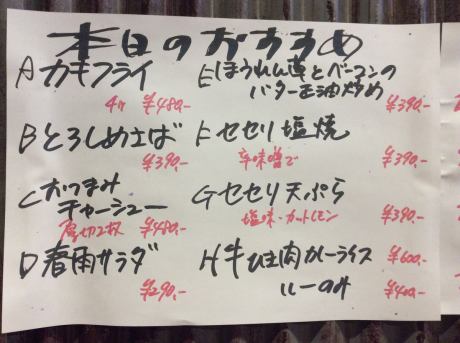 本日のおすすめ
A カキフライ
4ヶ ¥480.-
B とろしめさば
¥390.-
C おつまみ
チャーシュー
厚切2枚 ¥480.-
D 春雨サラダ
¥290.-
E ほうれん草とベーコンの
バター正油炒め
¥390.-
F セセリ塩焼
辛味噌で ¥390.-
G セセリ天ぷら
塩味・カットレモン ¥390.-
H 牛すじ肉カレーライス ¥600.-
ルーのみ ¥400.-